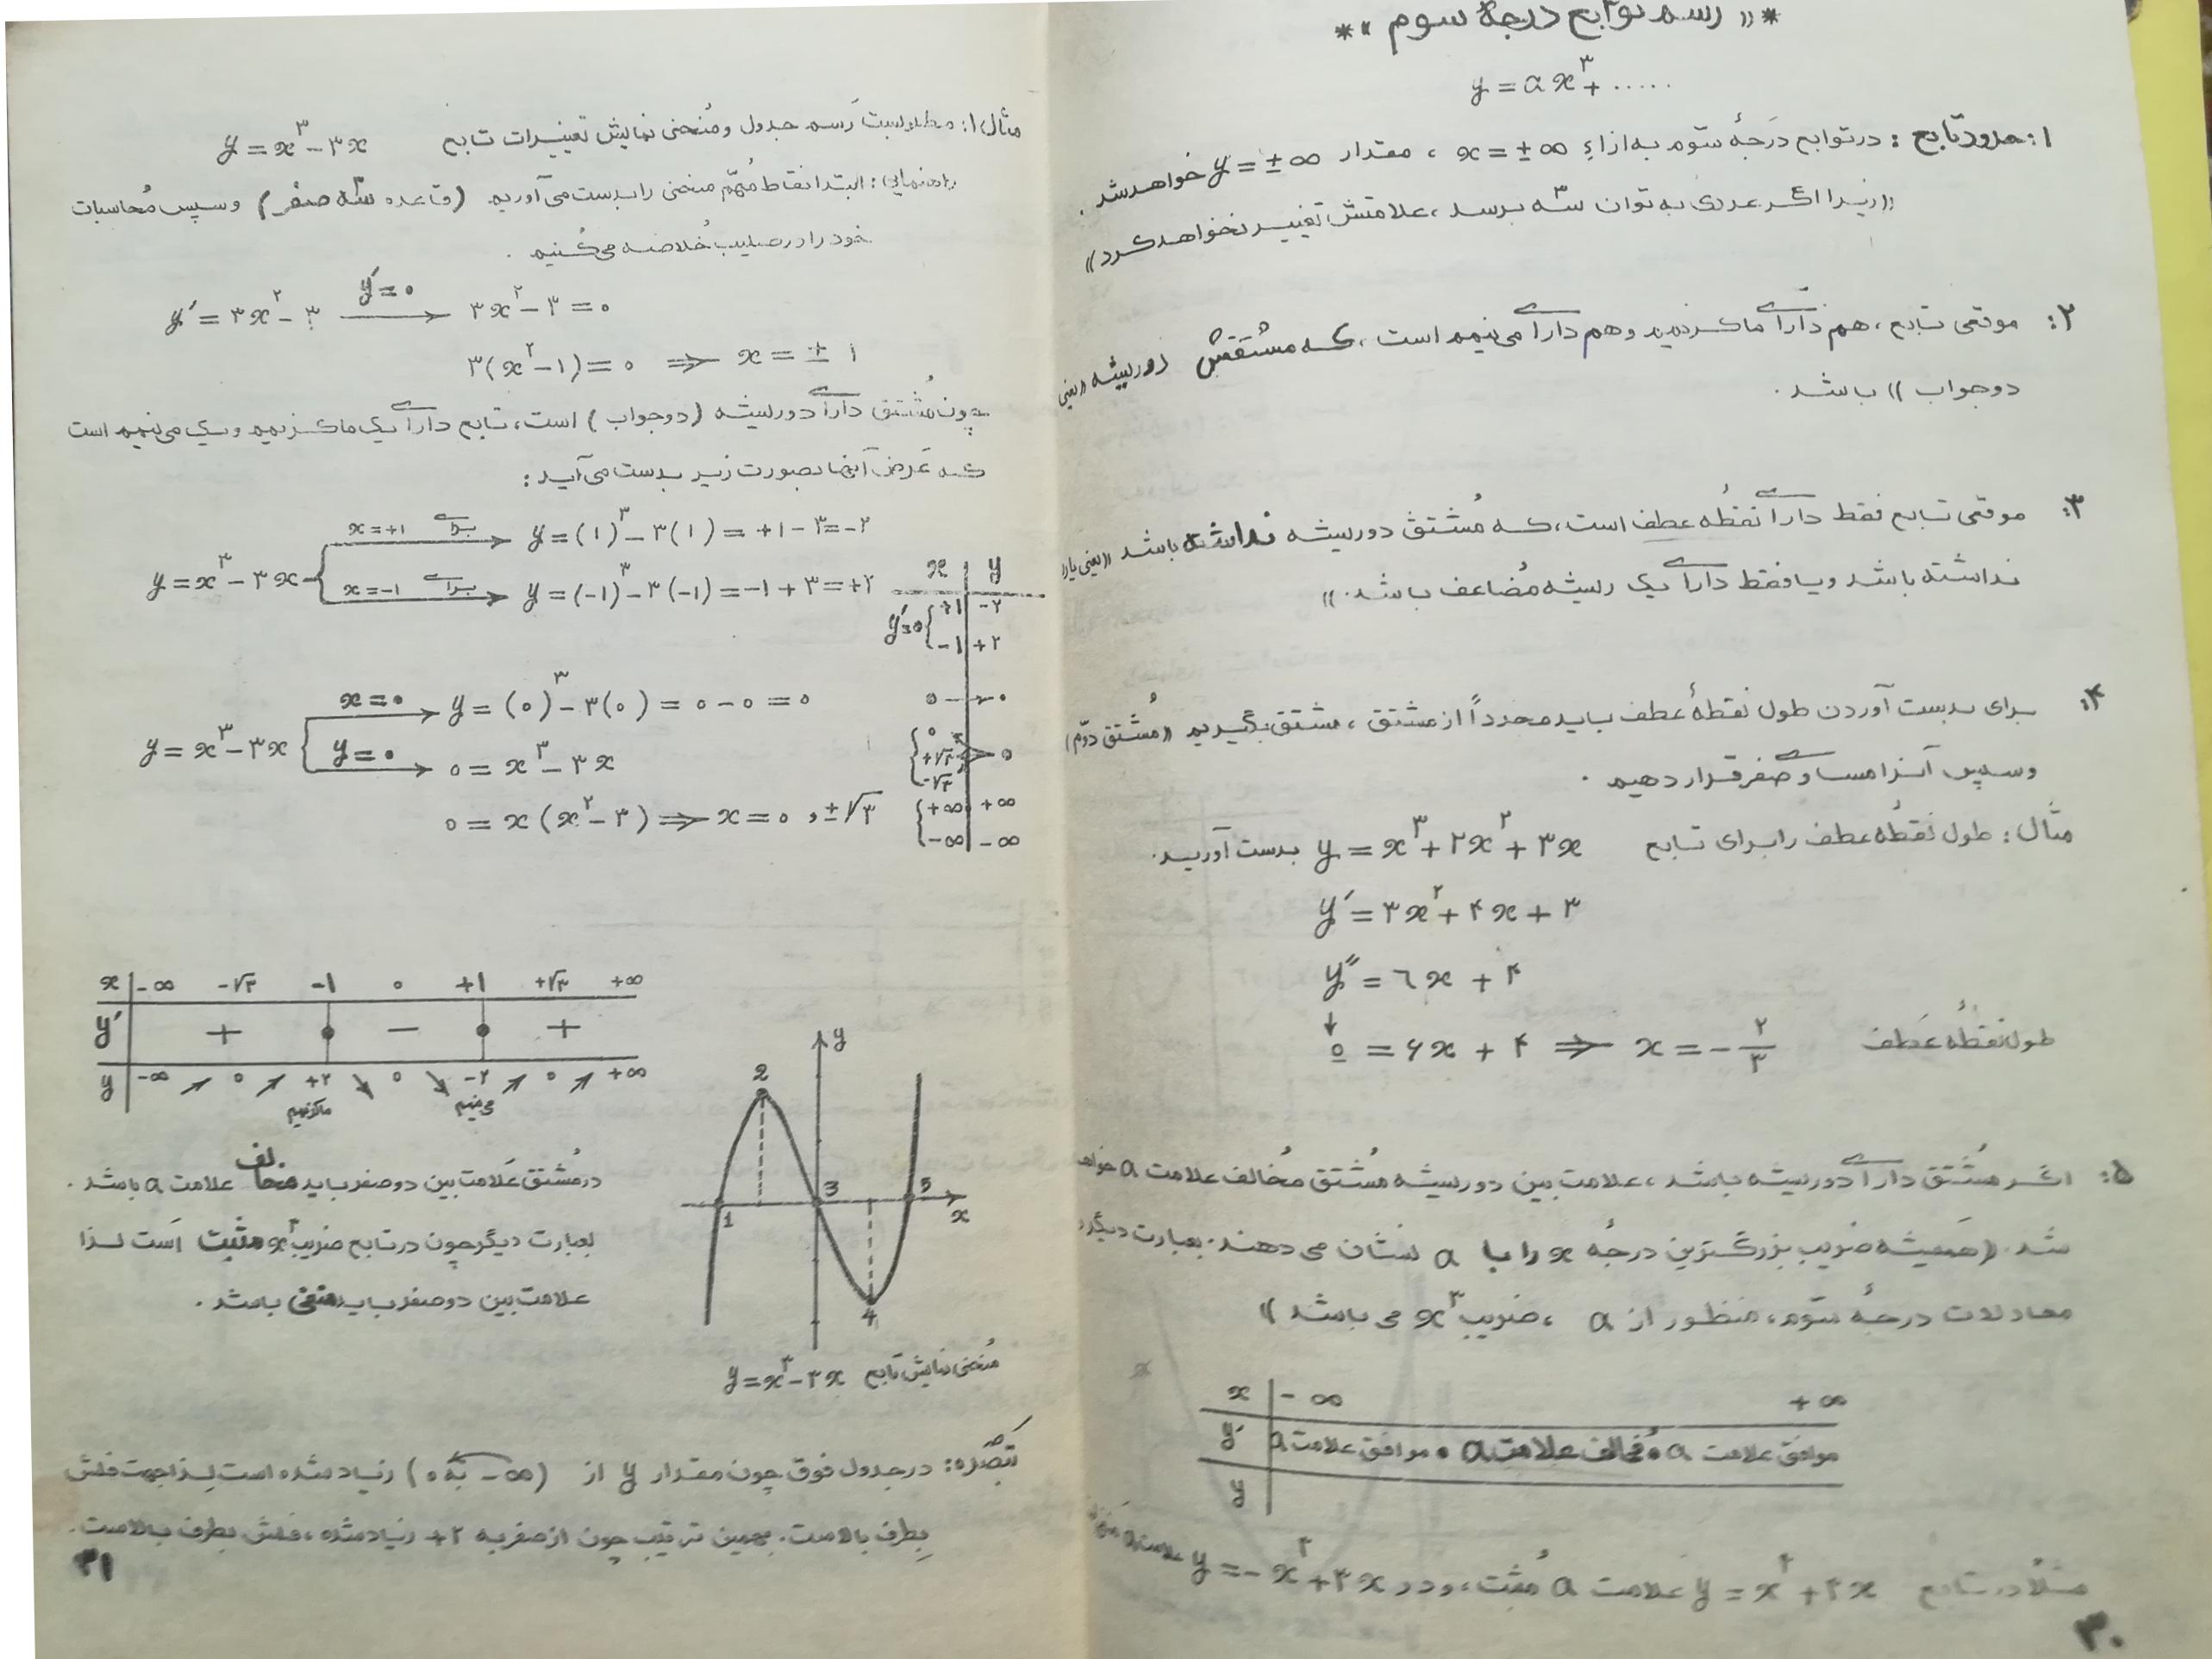 *« رسم توابع درجهٔ سوم »*
y = ax³ + .....
۱: حدود تابع : در توابع دَرجهٔ سوّم به ازاءِ x = ±∞ ، مقدار y = ±∞ خواهد شد .
« زیرا اگر عددی به توان سه برسد ، علامتش تغییر نخواهد کرد »
۲: موقعی تابع ، هم دارای ماکزیمم و هم دارای می‌نیمم است ، که مشتقش دو ریشه « یعنی
دو جواب » باشد .
۳: موقعی تابع فقط دارای نقطهٔ عطف است ، که مُشتق دو ریشه نداشته باشد « یعنی یا ر
نداشته باشد و یا فقط دارای یک ریشه مُضاعف باشد . »
۴: برای بدست آوردن طول نقطهٔ عطف باید مجدداً از مشتق ، مشتق بگیریم « مُشتق دوّم »
و سپس آنرا مساوی صفر قرار دهیم .
مثال : طول نقطهٔ عطف را برای تابع y = x³ + ۲x² + ۳x بدست آورید .
y′ = ۳x² + ۴x + ۳
y″ = ٦x + ۴
↓
۰ = ۶x + ۴ ⇒ x = -۲/۳ طول نقطهٔ عَطف
۵: اگر مُشتق دارای دو ریشه باشد ، علامت بین دو ریشه مُشتق مُخالف علامت a خواهد
شد . « هَمیشه ضریب بزرگترین درجهٔ x را با a نشان می دهند . بعبارت دیگر
معادلات درجهٔ سوّم ، منظور از a ، ضریب x³ می باشد »
x | -∞ +∞
y′ | موافق علامت a ۰ مُخالف علامت a ۰ موافق علامت a
y |
مثلاً در تابع y = x³ + ۳x علامت a مُثبت ، و در y = -x³ + ۳x علامت a
۳۰
مثال ۱: مطلوبست رَسم جدول و مُنحنی نمایش تغییرات تابع y = x³ - ۳x
راهنمایی : ابتدا نقاط مُهّم منحنی را بدست می آوریم (قاعده سّه صفر) و سپس مُحاسبات
خود را در صلیب خُلاصه می کُنیم .
y′ = ۳x² - ۳ y′=۰ → ۳x² - ۳ = ۰
۳(x² - ۱) = ۰ ⇒ x = ± ۱
چون مُشتق دارای دو ریشه (دو جواب) است ، تابع دارای یک ماکزیمم و یک می نیمم است
که عَرض آنها بصورت زیر بدست می آید :
x=+۱ برای → y = (۱)³ - ۳(۱) = +۱ - ۳ = -۲
y = x³ - ۳x
x=-۱ برای → y = (-۱)³ - ۳(-۱) = -۱ + ۳ = +۲
x | y
y′=۰ { +۱ | -۲
-۱ | +۲
۰ → ۰
{ ۰ +√۳ -√۳ > ۰
{ +∞ | +∞
-∞ | -∞
x = ۰ → y = (۰)³ - ۳(۰) = ۰ - ۰ = ۰
y = x³ - ۳x
y = ۰ → ۰ = x³ - ۳x
۰ = x (x² - ۳) ⇒ x = ۰ , ±√۳
x | -∞ -√۳ -۱ ۰ +۱ +√۳ +∞
y′ | + • — • +
y | -∞ ↗ ۰ ↗ +۲ ↘ ۰ ↘ -۲ ↗ ۰ ↗ +∞
ماکزیمم می نیمم
y
2
3
5
1
x
4
مُنحنی نمایش تابع y = x³ - ۳x
در مُشتق عَلامت بین دو صفر باید مخالف علامت a باشد .
بعبارت دیگر چون در تابع ضریب x³ مثبت است لذا
علامت بین دو صفر باید منفی باشد .
تَبْصَره : در جدول فوق چون مقدار y از (-∞ به ۰) زیاد شده است لذا جهت فلش
بِطرف بالاست . بهمین ترتیب چون از صفر به +۲ زیاد شده ، فلش بطرف بالاست .
۳۱